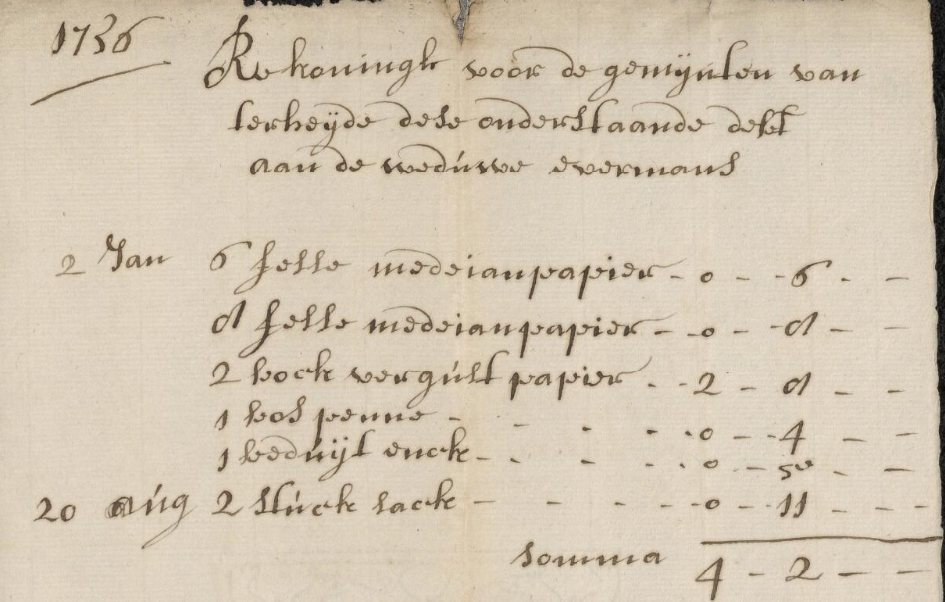 1736
Rekoningh voor de gemijnten van
terheijde dese onderstaande debt
aan de weduwe evermans
2 Jan 6 felle medeianpapier - 0 - - 6 - -
8 felle medeianpapier - - 0 - - 8 - -
2 bock vergult papier - - 2 - 8 - -
1 bos penne - - - - - 0 - - 4 - -
1 enck - - - - - 0 - - 5 - -
20 aug 2 stuck lack - - - - - 0 - 11 - - -
somma 4 - 2 - -